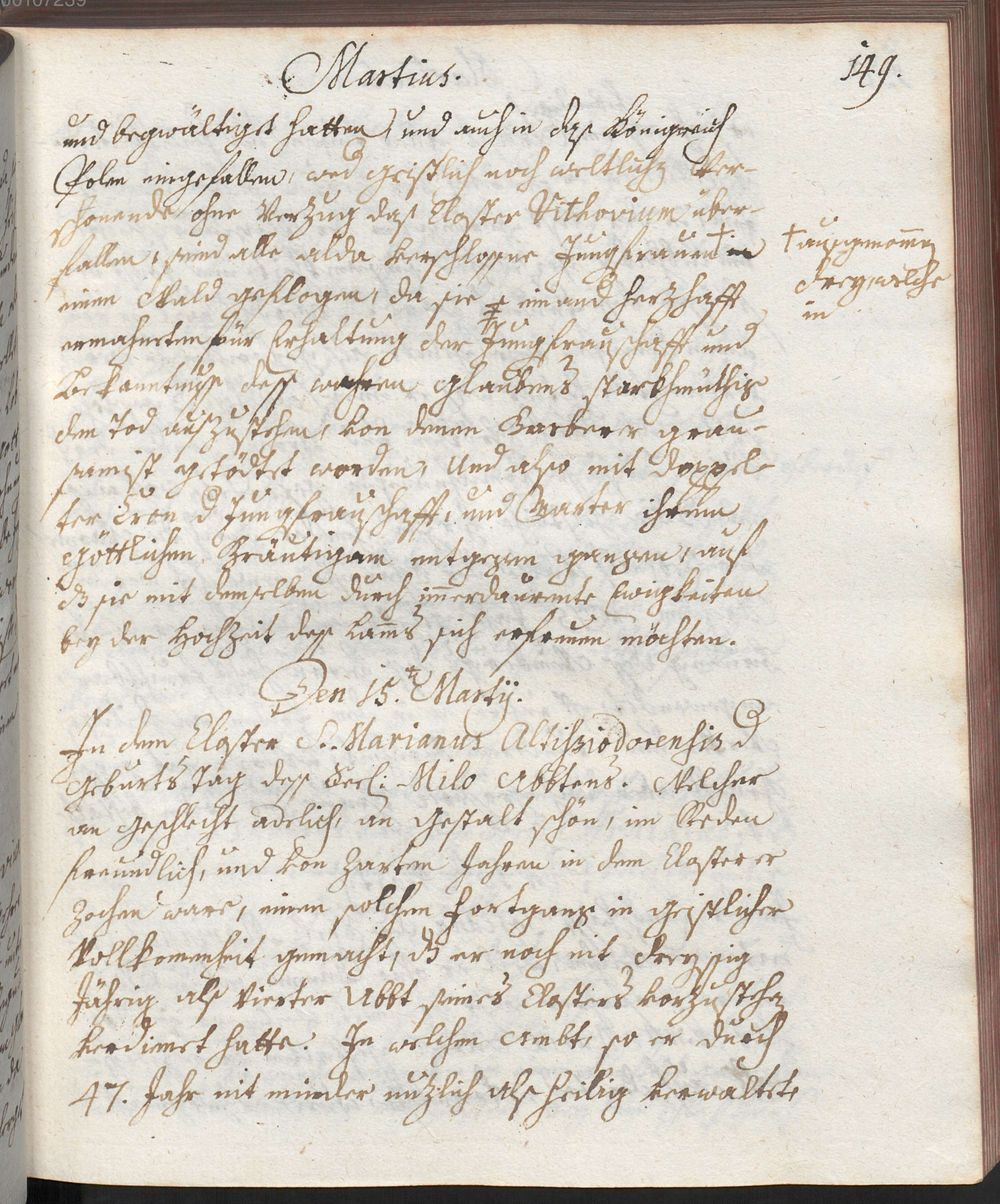 Martius.
149.
und begwältiget hatten, und auch in daß Königreich
Polen eingefallen, wed geistlich noch weltlich ver-
schonende ohne Verzug daß Closter Vithovium über-
fallen, seind alle alda verschlossne Jungfrauen † in
† ausgenomen
drey, welche
in
einen Wald geflogen, da sie einand herzhafft
ermahneten für Erhaltung der Jungfrauschafft und
bekanntnuß deß wahren Glaubens starkhmüthig
den Tod auszustehen, von denen Barberer grau-
samist getödtet worden, Und also mit doppel-
ter Cron d Jungfrauschafft, und Marter ihrem
Göttlichen Bräutigam entgegen gangen, auf
dß sie mit demselben durch imerdaurente Ewigkeiten
bey der Hochzeit deß Lams sich erfreuen möchten.
Den 15.t Martij.
In dem Closter S. Marianus Altissiodorensis d
Geburts Tag deß Seel: Milo Abbtens. Welcher
an Geschlecht adelich, an Gestalt schön, im Reden
freundlich, und von Zarten Jahren in dem Closter er
Zochen ware, einen solchen Fortgang in geistlicher
Vollkomenheit gemacht, dß er noch nit dreyssig
Jährig als Vierter Abbt seines Closters vorzustehen
verdienet hatte. In welchem Ambt, so er durch
47. Jahr nit minder nutzlich als heilig verwaltete